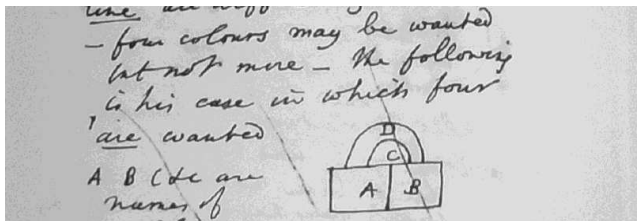 line are diff
– four colours may be wanted
but not more – the following
is his case in which four
are wanted
D
C
A B
A B C &c are
names of